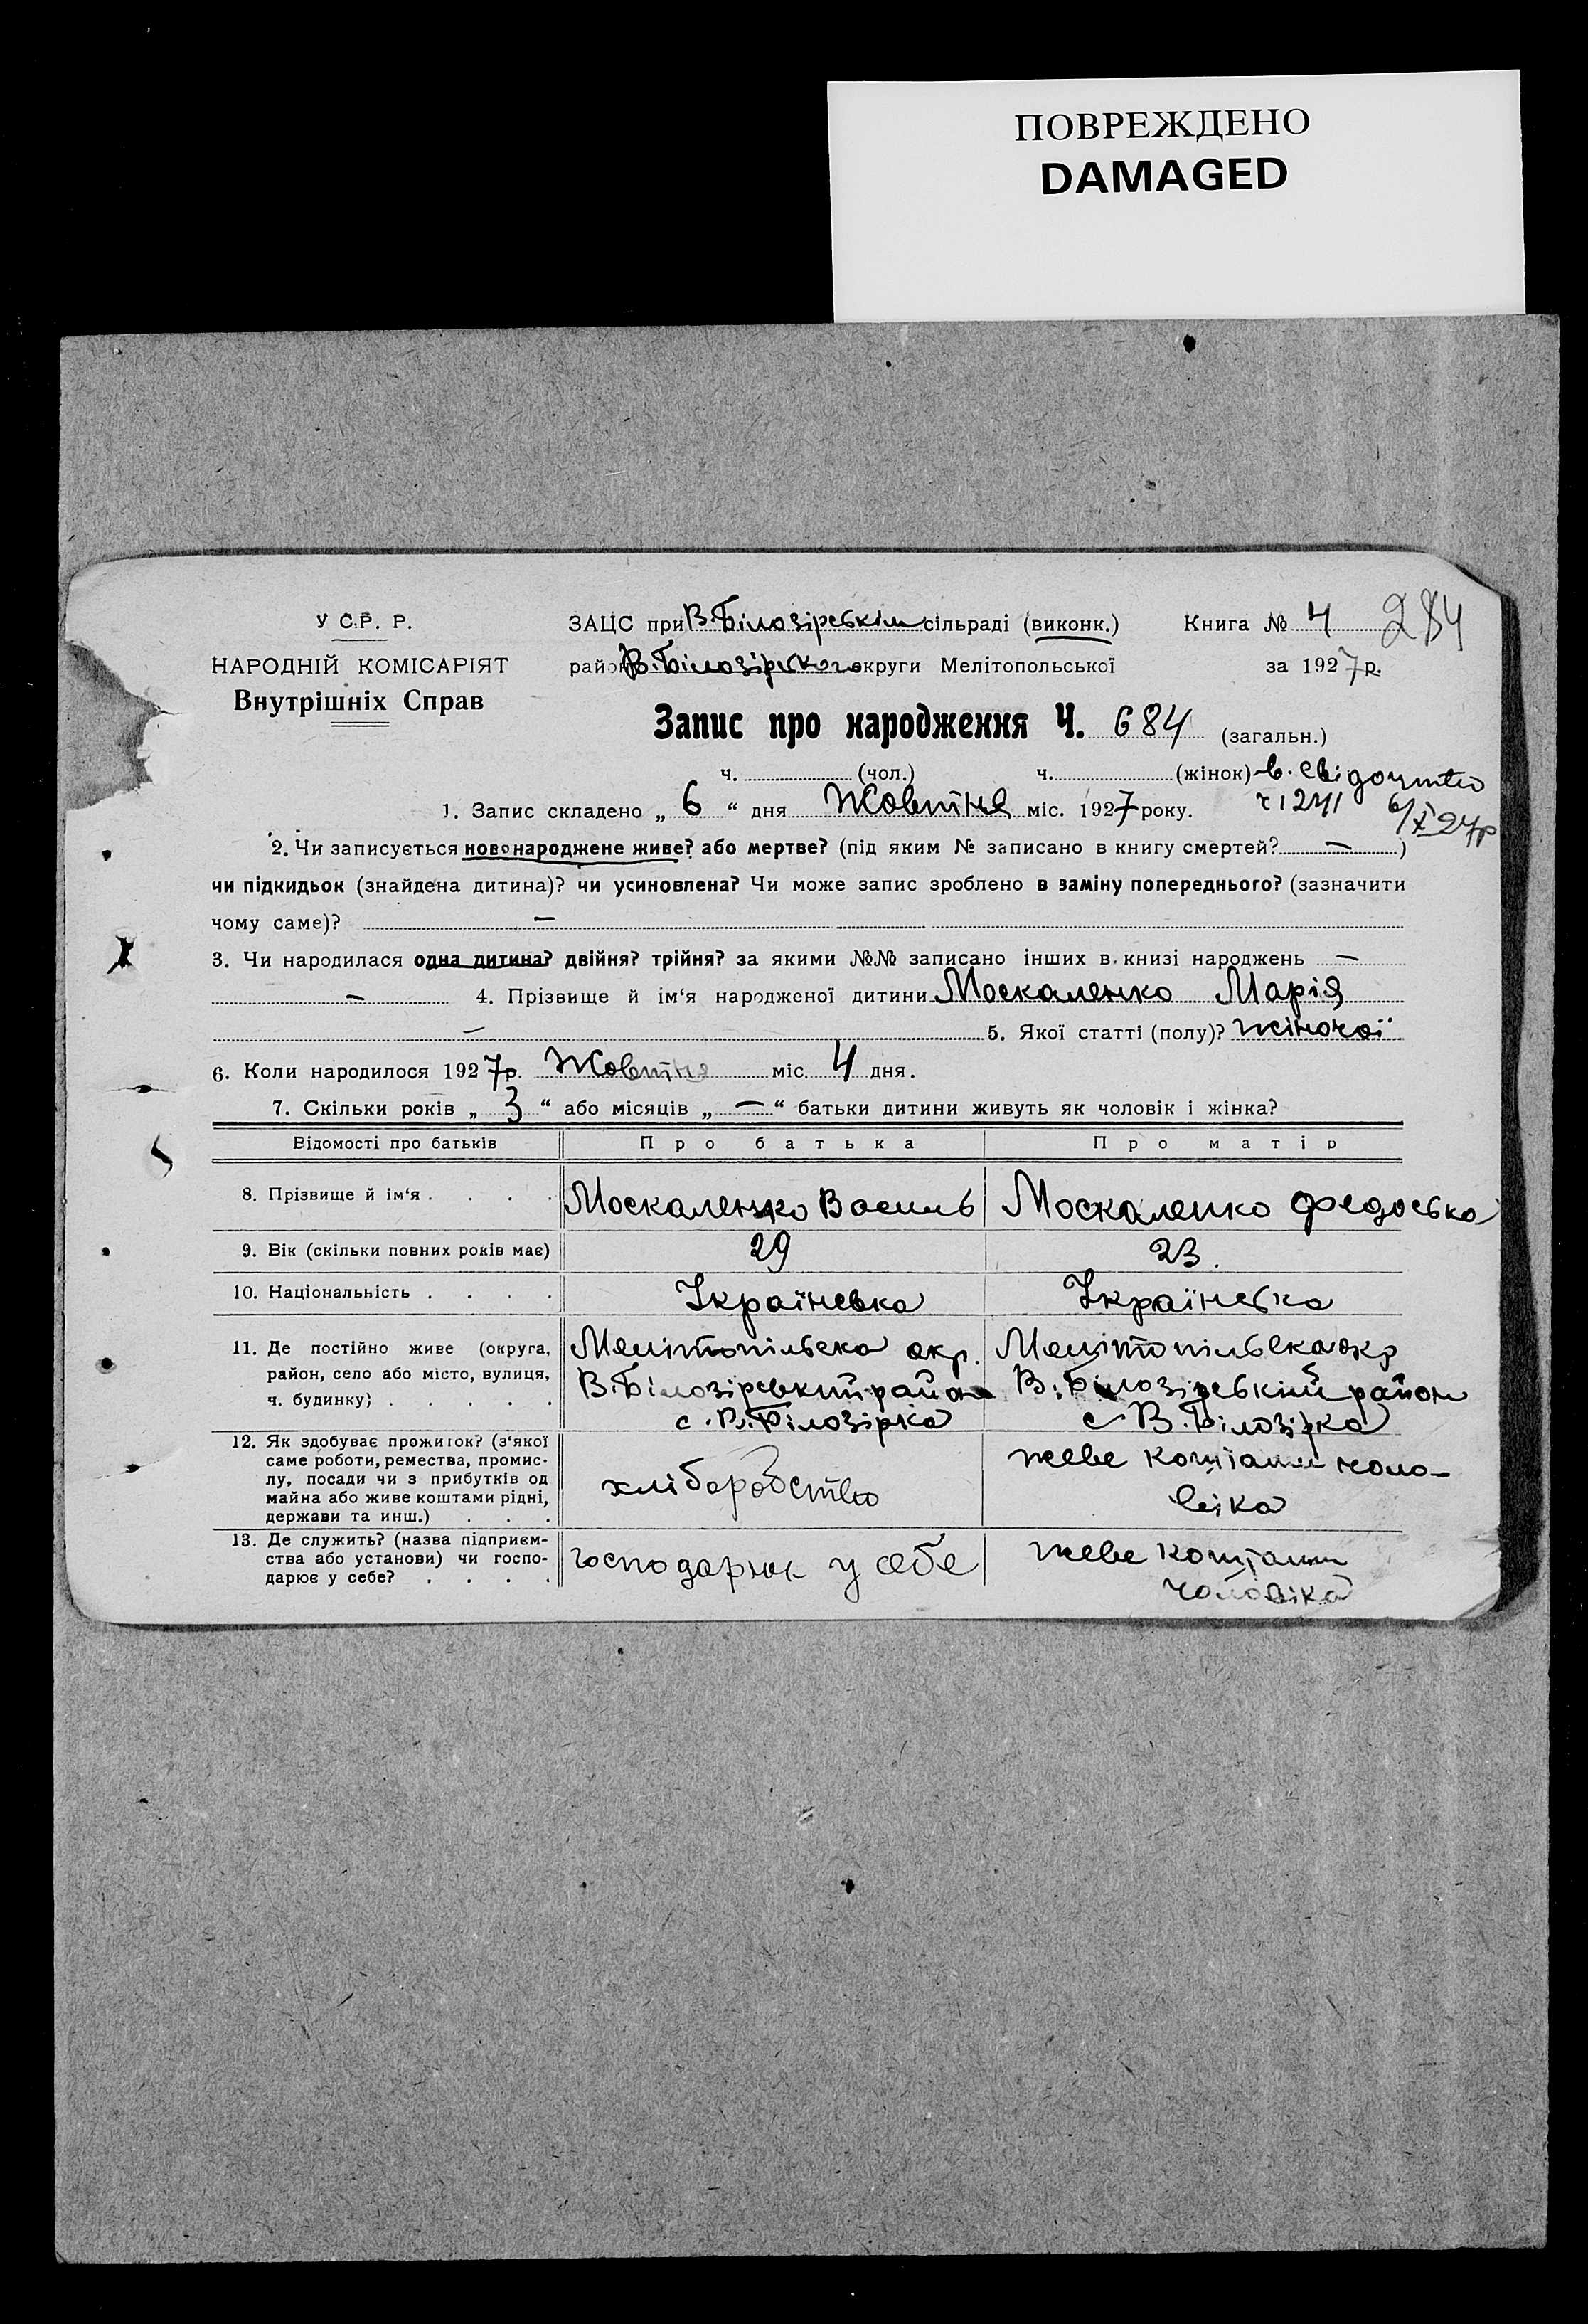 ПОВРЕЖДЕНО
DAMAGED
У С.Р. Р.
НАРОДНІЙ КОМІСАРІЯТ
Внутрішніх Справ
ЗАЦС при В.Білозірськім сільраді (виконк.) Книга № 4 284
район В.Білозірського округи Мелітопольської за 1927 р.
Запис про народження Ч. 684 (загальн.)
ч. (чол.) ч. (жінок) в. свідоцтво
1. Запис складено „ 6 “ дня Жовтня міс. 1927 року. ч 1241 6/X 27р
2. Чи записується новонароджене живе? або мертве? (під яким № записано в книгу смертей? — )
чи підкидьок (знайдена дитина)? чи усиновлена? Чи може запис зроблено в заміну попереднього? (зазначити
чому саме)? —
3. Чи народилася одна дитина? двійня? трійня? за якими №№ записано інших в книзі народжень —
— 4. Прізвище й ім‘я народженої дитини Москаленко Марія
— 5. Якої статті (полу)? жіночої
6. Коли народилося 1927 р. Жовтня міс. 4 дня.
7. Скільки років „ 3 “ або місяців „ — “ батьки дитини живуть як чоловік і жінка?
Відомості про батьків Про батька Про матір
8. Прізвище й ім‘я . . . . Москаленко Василь Москаленко Федоська
9. Вік (скільки повних років має) 29 23.
10. Національність . . . . Українська Українська
11. Де постійно живе (округа, Мелітопільска окр. Мелітопільска окр
район, село або місто, вулиця, В.Білозірський район В.Білозірській район
ч. будинку) . . . . . с. В.Білозірка с В.Білозірка
12. Як здобуває прожиток? (з‘якої
саме роботи, ремества, промис-
лу, посади чи з прибутків од
майна або живе коштами рідні,
держави та инш.) . . .
хліборобство
живе коштами чоло-
віка
13. Де служить? (назва підприєм-
ства або установи) чи госпо-
дарює у себе? . . . .
господарює у себе
живе коштами
чоловіка